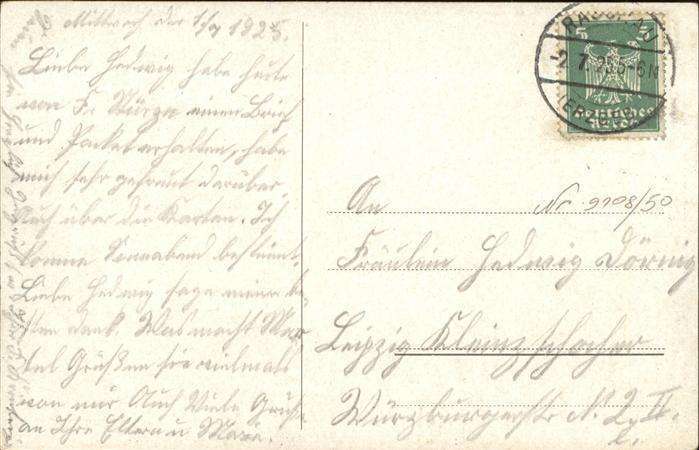 Mittwoch den 1/7 1925.
Liebe Hedwig habe heute
von Fr. einen Brief
und Packet erhalten, habe
mich sehr gefreut darüber
auch über die Karten. Ich
komme Sonnabend bestimmt.
Liebe Hedwig sage meinen be-
sten dank. Was macht
Grüßen sie vielmals
von mir Auch Viele Grüße
an Ihre Eltern u
5 5
2.7.25 5-6N
Deutsches
Reich
An
Nr. 9708/50
Fräulein Hedwig Dörnig
Leipzig Kleinzschocher
Würzburgerstr No 2 II.